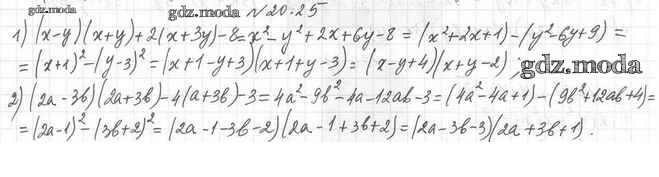 gdz.moda gdz.moda №20.25
1) (x-y)(x+y)+2(x+3y)-8=x²-y²+2x+6y-8=(x²+2x+1)-(y²-6y+9)=
=(x+1)²-(y-3)²=(x+1-y+3)(x+1+y-3)=(x-y+4)(x+y-2); gdz.moda
2) (2a-3b)(2a+3b)-4(a+3b)-3=4a²-9b²-4a-12ab-3=(4a²-4a+1)-(9b²+12ab+4)=
=(2a-1)²-(3b+2)²=(2a-1-3b-2)(2a-1+3b+2)=(2a-3b-3)(2a+3b+1).